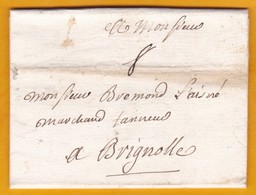 A Monsieur
8
Monsieur Bremond L'aisné
marchand tanneur
a Brignolle